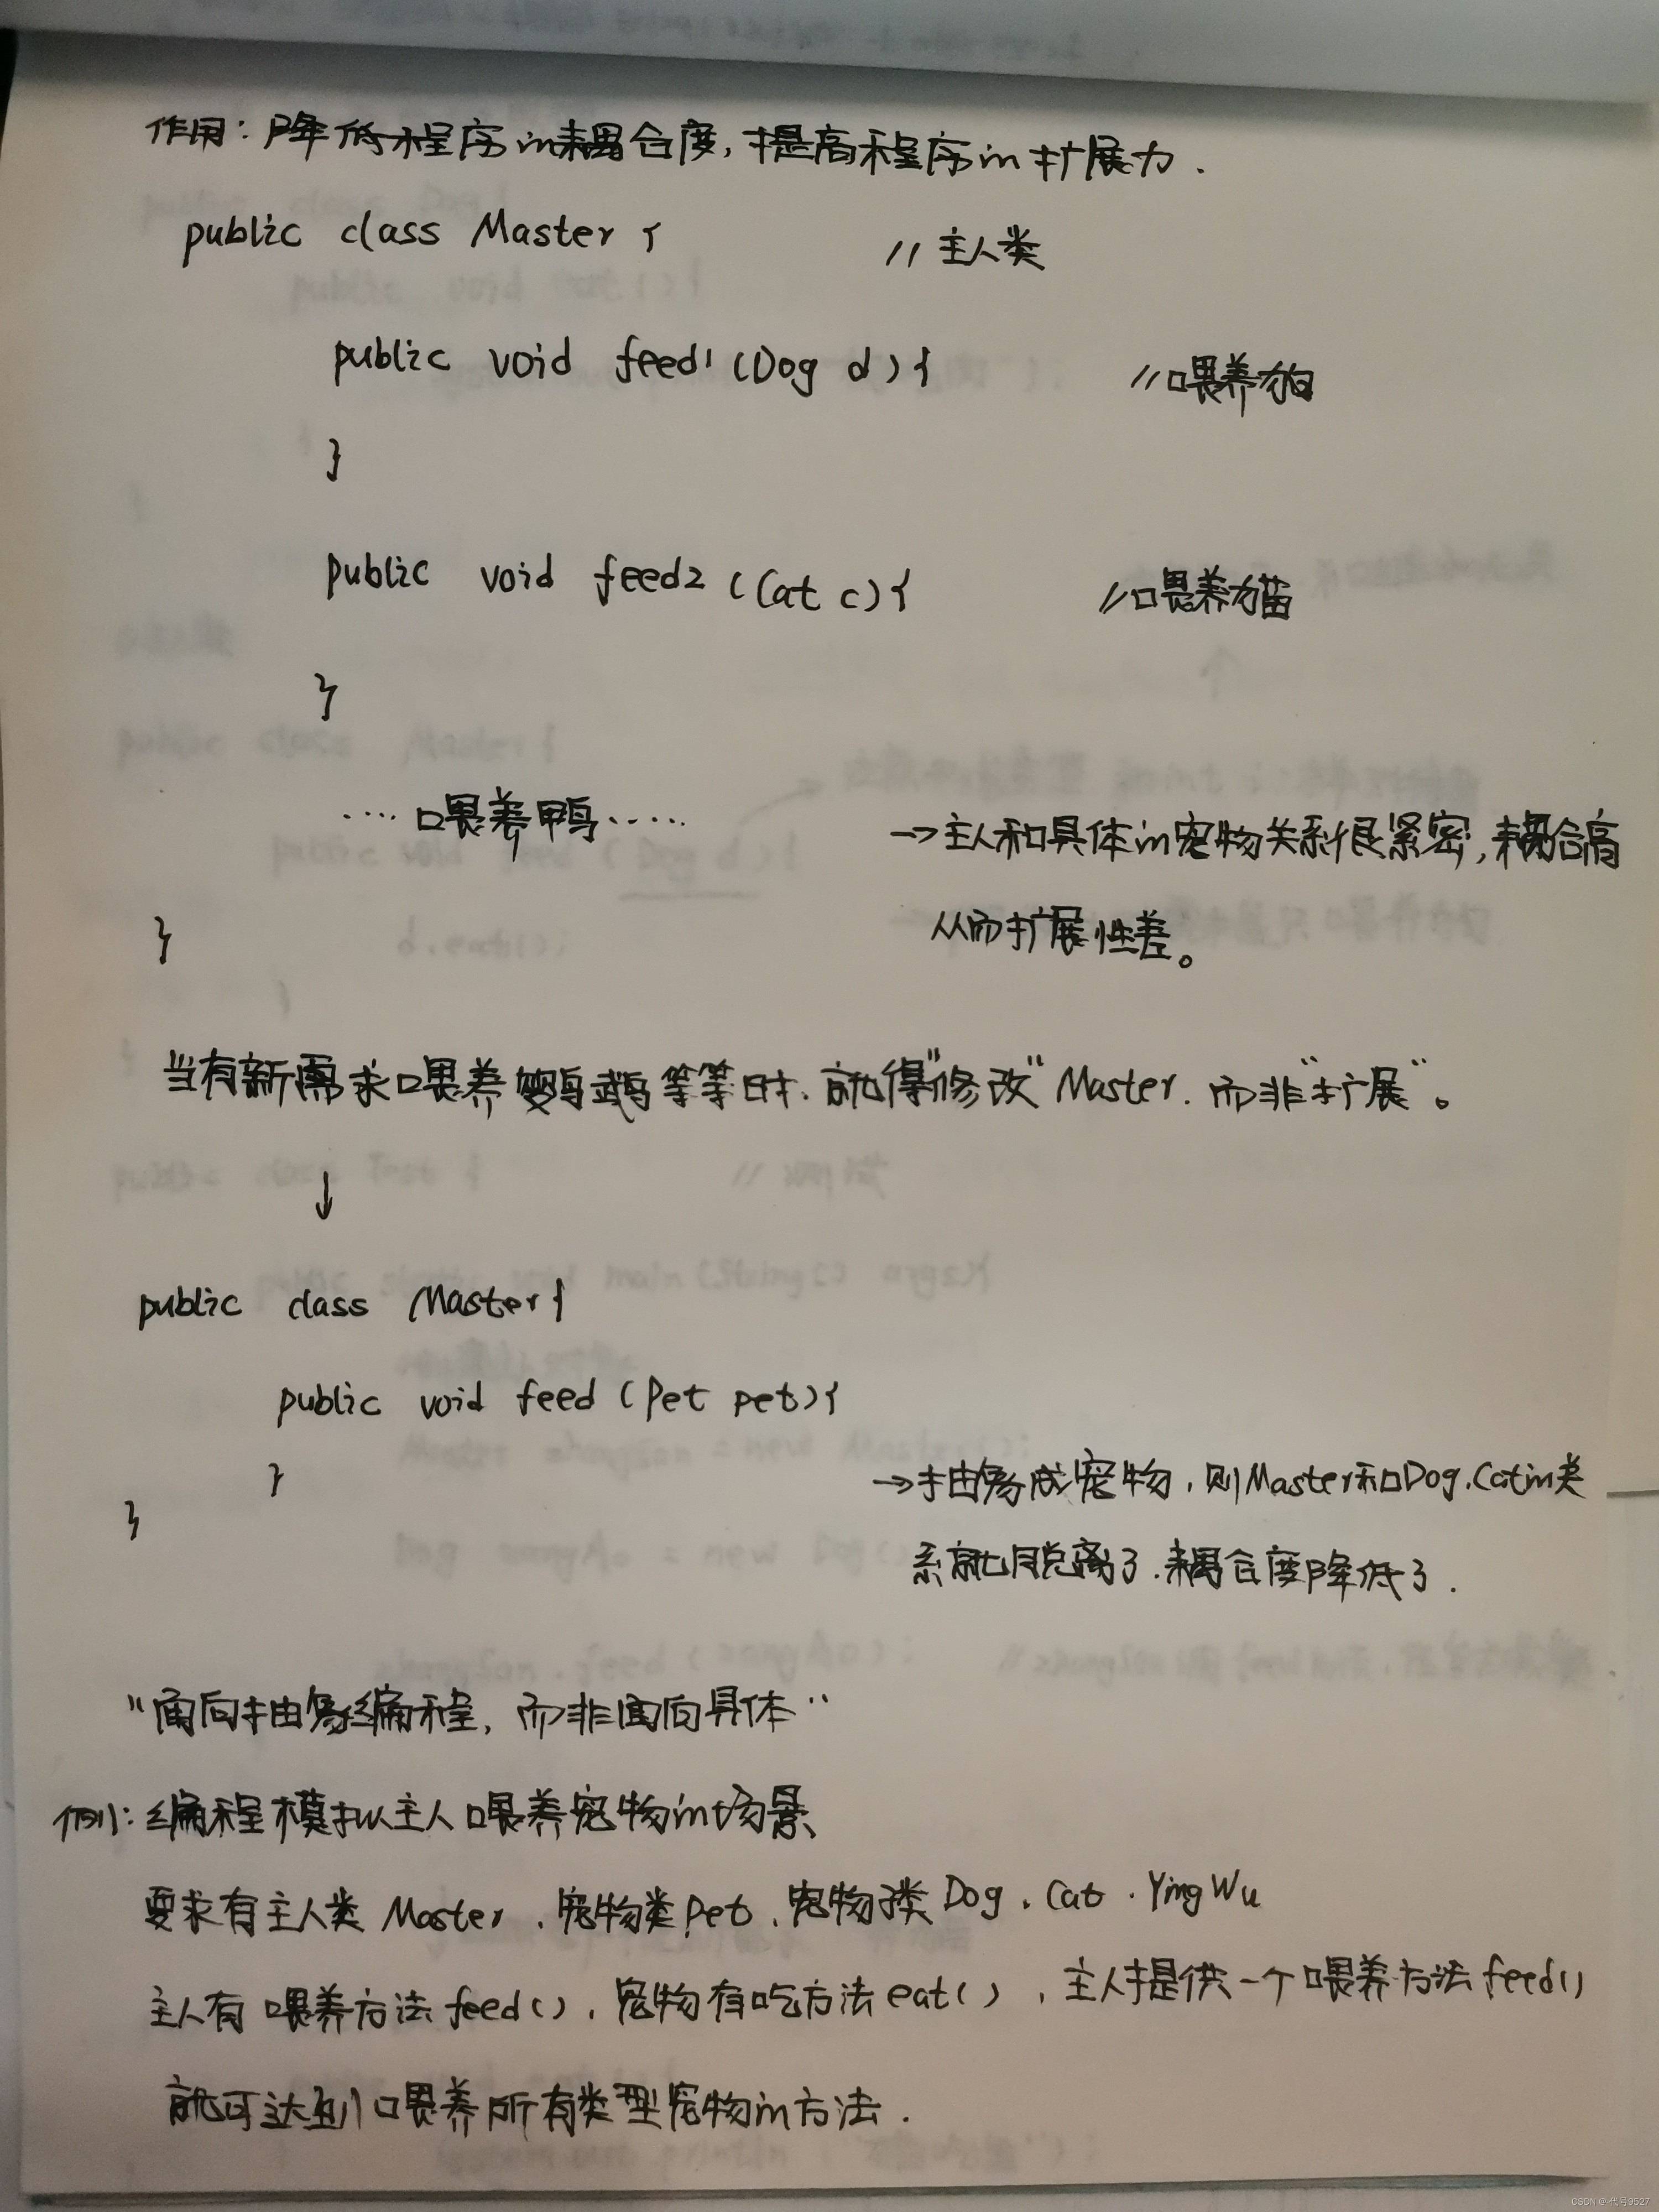 作用：降低程序in耦合度，提高程序in扩展力.
public class Master { //主人类
public void feed1 (Dog d){ //喂养狗
}
public void feed2 (Cat c){ //喂养猫
}
····喂养鸭····· →主人和具体in宠物关系很紧密，耦合高
} 从而扩展性差。
当有新需求喂养鹦鹉等等时、就得"修改"Master. 而非"扩展"。
↓
public class Master{
public void feed (Pet pet){
} →抽象成宠物，则Master和Dog、Catin类
} 系就脱离了.耦合度降低了.
"面向抽象编程，而非面向具体"
例1：编程模拟主人喂养宠物in场景
要求有主人类 Master、宠物类Pet、宠物子类 Dog、Cat、YingWu
主人有喂养方法feed()、宠物有吃方法eat()，主人提供一个喂养方法feed()
就可达到喂养所有类型宠物in方法.
CSDN @代号9527